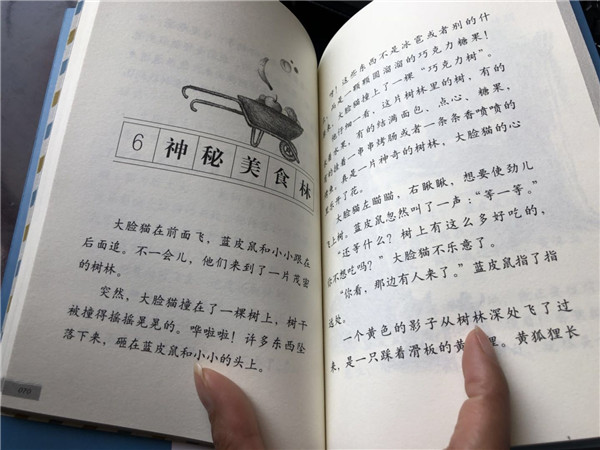 6 神秘美食林
大脸猫在前面飞，蓝皮鼠和小小跟在
后面追。不一会儿，他们来到了一片茂密
的树林。
突然，大脸猫撞在了一棵树上，树干
被撞得摇摇晃晃的。哗啦啦！许多东西坠
落下来，砸在蓝皮鼠和小小的头上。
呀！这些东西不是冰雹或者别的什
是一颗颗圆溜溜的巧克力糖果！
大脸猫撞上了一棵“巧克力树”。
仔细一看，这片树林里的树，有的
有的结满面包、点心、糖果，
挂着一串串烤肠或者一条条香喷喷的
真是一片神奇的树林，大脸猫的心
开了花。
大脸猫左瞄瞄，右瞅瞅，想要使劲儿
飞上树。蓝皮鼠忽然叫了一声：“等一等。”
“还等什么？树上有这么多好吃的，
你不想吃吗？”大脸猫不乐意了。
“你看，那边有人来了。”蓝皮鼠指了指
远处。
一个黄色的影子从树林深处飞了过
来，是一只踩着滑板的黄狸。黄狐狸长